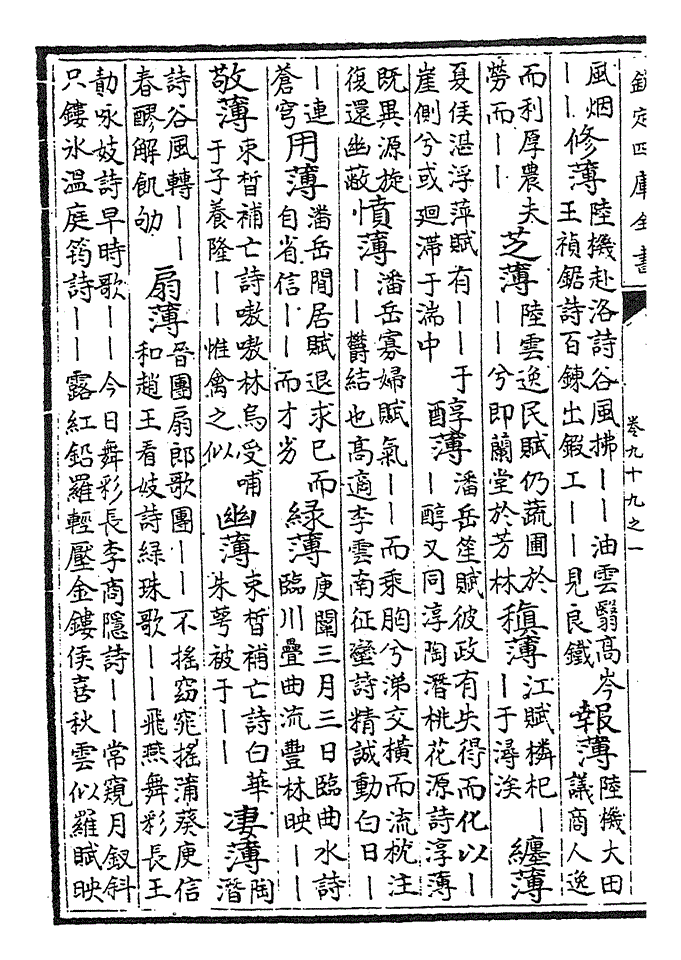 欽定四庫全書 卷九十九之一
風烟——修薄陸機赴洛詩谷風拂——油雲翳高岑王禎鋸詩百鍊出鍜工——見良鐵報薄陸機大田議商人逸
而利厚農夫勞而——芝薄陸雲逸民賦仍蔬圃於——兮即蘭堂於芳林稹薄江賦橉杞——于潯涘纏薄
夏侯湛浮萍賦有——于崖側兮或迴滯于湍中醇薄潘岳笙賦彼政有失得而化以——醇又同淳陶潛桃花源詩淳薄
既異源旋復還幽蔽憤薄潘岳寡婦賦氣——而乘胸兮涕交橫而流枕注——欝結也高適李雲南征蠻詩精誠動白日—
—連蒼穹用薄潘岳閒居賦退求已而自省信——而才劣緑薄庾闡三月三日臨曲水詩臨川疊曲流豐林映——
敬薄束晳補亡詩嗷嗷林烏受哺于子養隆——惟禽之似幽薄束晳補亡詩白華朱萼被于——凄薄陶潛
詩谷風轉——春醪解飢劬扇薄晉團扇郎歌團——不搖窈窕搖蒲葵庾信和趙王看妓詩緑珠歌——飛燕舞彩長王
勣咏妓詩早時歌——今日舞彩長李商隱詩——常窺月釵斜只鏤冰溫庭筠詩——露紅鉛羅輕壓金鏤侯喜秋雲似羅賦映